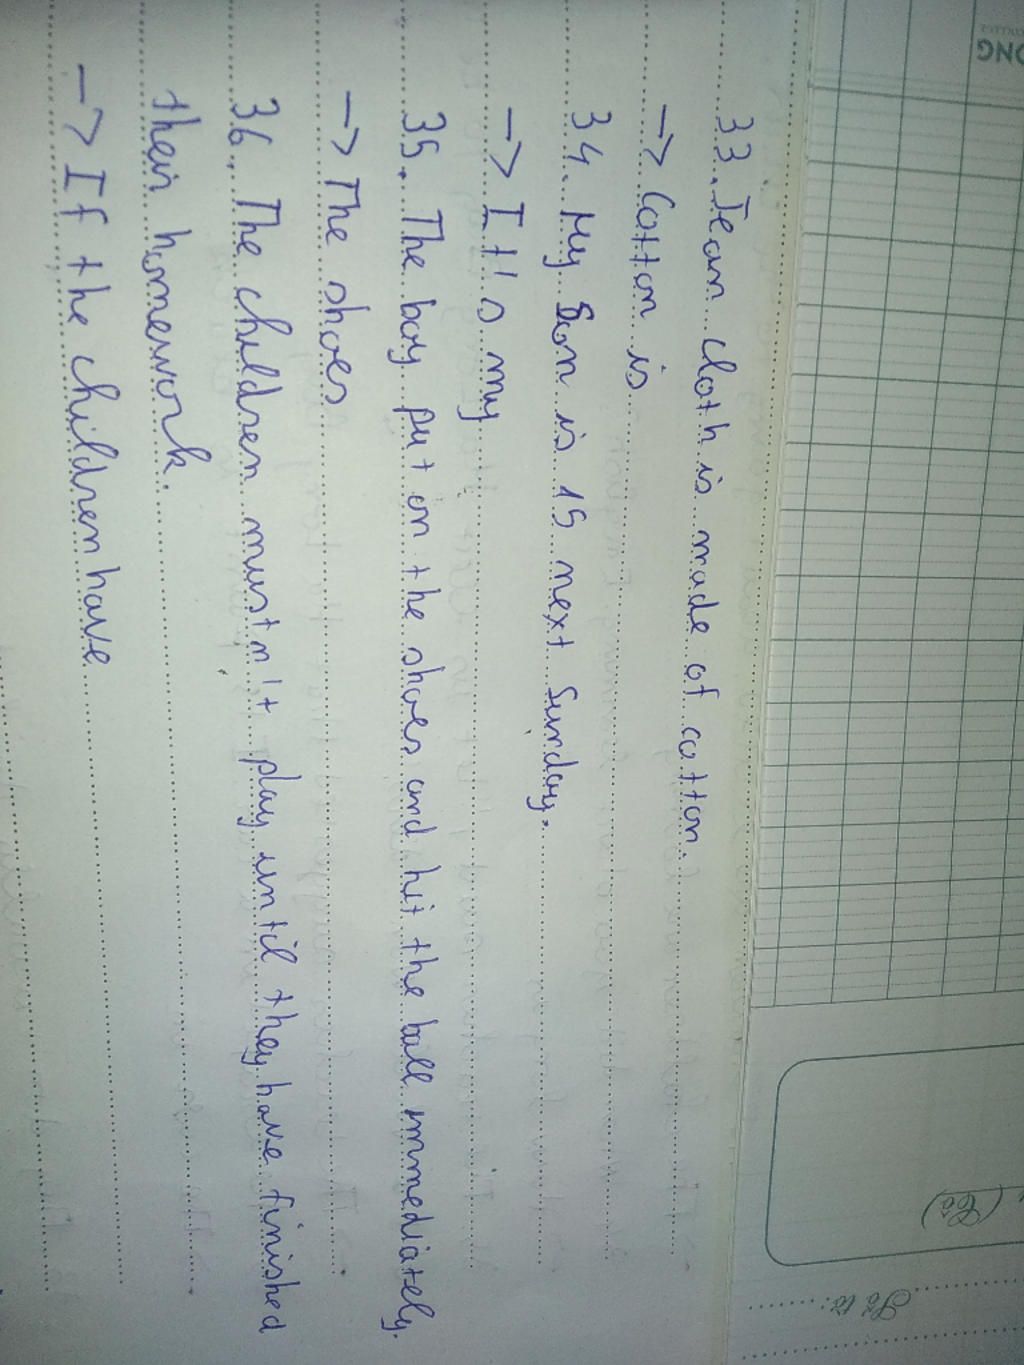 33. Jean cloth is made of cotton.
-> Cotton is
34. My Son is 15 next Sunday.
-> It's my
35. The boy put on the shoes and hit the ball immediately.
-> The shoes
36. The children mustn't play until they have finished
their homework.
-> If the children have
ONG